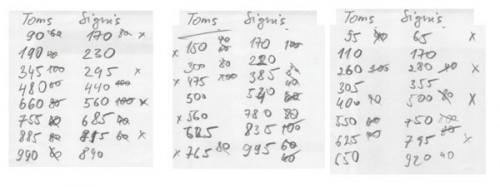 Toms Signe's
90 60 170 80 x
190 80 230
345 100 295 x
480 80 440 100
660 80 560 100 x
755 80 685 70
885 80 815 60 x
990 80 890
Toms Signe's
150 170 100
x 300 80 220
x 475 100 385
500
x 560 780 80
685 835 100
x 765 80 995 60
Toms Signe's
55 65 x
110 170
260 100 280 x
305 355
400 500 80 x
550 80 750
625 795 x
650 920 40